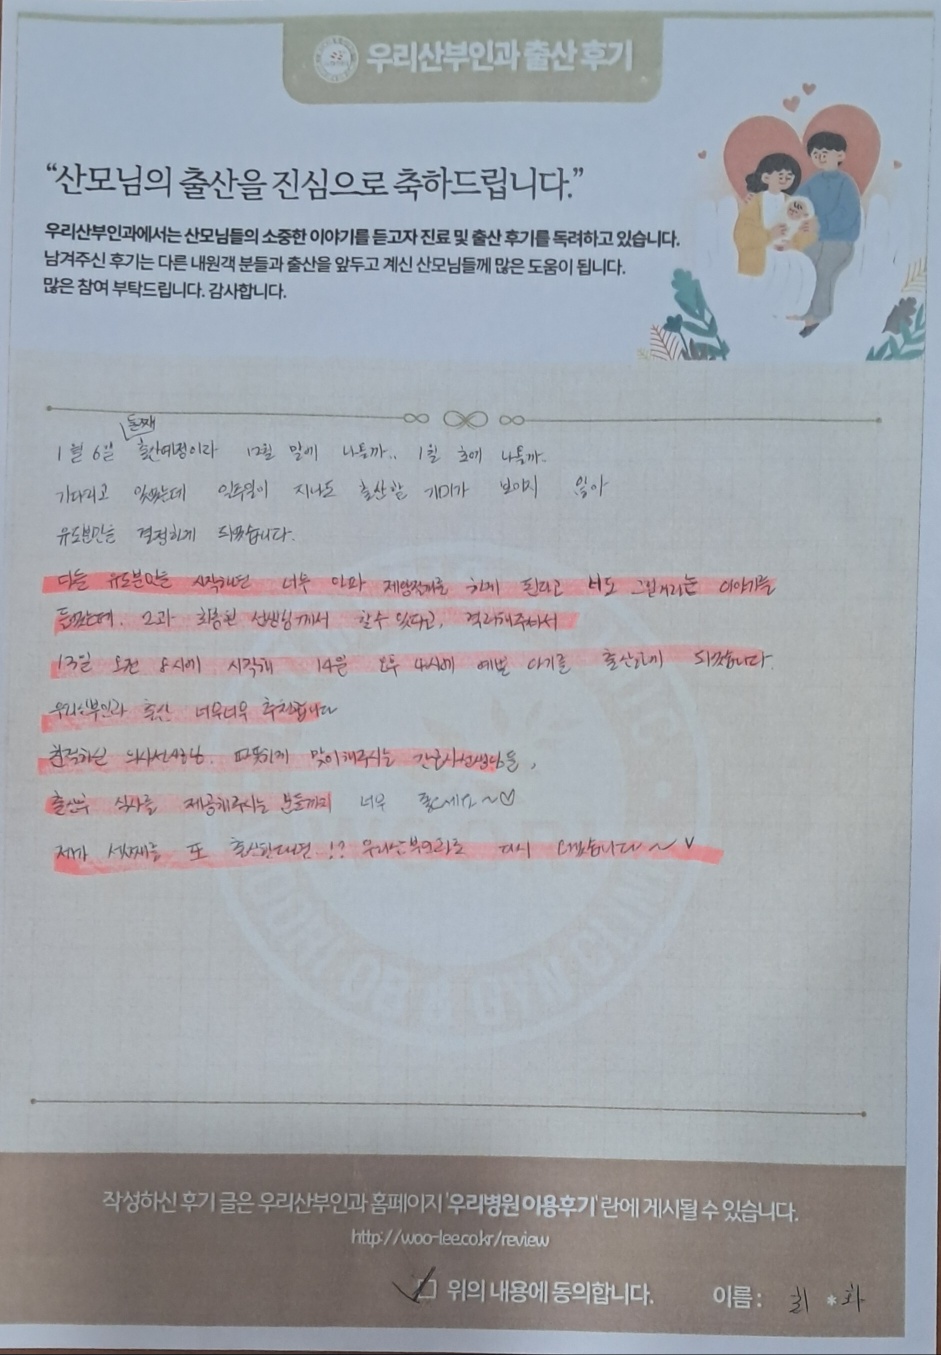 우리산부인과 출산 후기
“산모님의 출산을 진심으로 축하드립니다.”
우리산부인과에서는 산모님들의 소중한 이야기를 듣고자 진료 및 출산 후기를 독려하고 있습니다.
남겨주신 후기는 다른 내원객 분들과 출산을 앞두고 계신 산모님들께 많은 도움이 됩니다.
많은 참여 부탁드립니다. 감사합니다.
둘째
1월 6일 출산예정이라 12월 말에 나올까.. 1월 초에 나올까..
기다리고 있었는데 일주일이 지나도 출산할 기미가 보이지 않아
유도분만을 결정하게 되었습니다.
다들 유도분만을 시작하면 너무 아파 제왕절개를 하게 된다고 너도 그럴거라는 이야기를
들었는데. 2과 원장님께서 할수있다고, 격려해주셔서
13일 오전 8시에 시작해 14일 오후 4시에 예쁜 아기를 출산하게 되었습니다.
우리산부인과 출산 너무너무 추천합니다
친절하신 의사선생님. 따뜻하게 맞이해주시는 간호사선생님들,
출산후 식사를 제공해주시는 분들까지 너무 좋으세요~♡
제가 셋째를 또 출산한다면!? 우리산부인과로 다시 오겠습니다~
WOORI OB & GYN CLINIC
작성하신 후기 글은 우리산부인과 홈페이지 '우리병원 이용후기' 란에 게시될 수 있습니다.
http://woo-lee.co.kr/review
위의 내용에 동의합니다. 이름 : 최 * 화